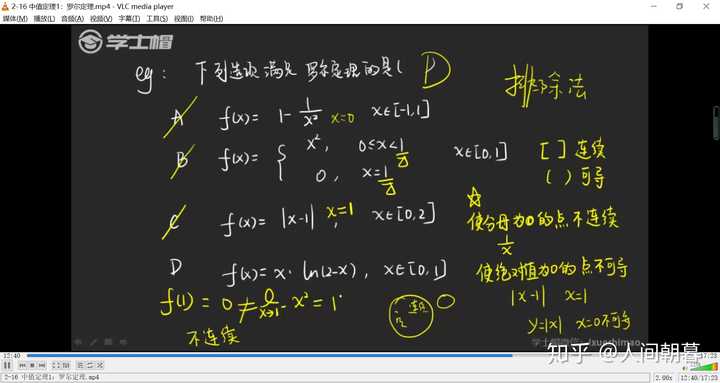 2-16 中值定理1：罗尔定理.mp4 - VLC media player
媒体(M) 播放(L) 音频(A) 视频(V) 字幕(T) 工具(S) 视图(I) 帮助(H)
学士帽
eg： 下列选项满足 罗尔定理的是( D
排除法
A f(x)= 1 - 1/x² x=0 x∈[-1,1]
B f(x)= { x², 0≤x<1
0, x=1 x∈[0,1]
[ ] 连续
( ) 可导
C f(x)= |x-1| x=1, x∈[0,2]
☆
使分母为0的点不连续
1/x
D f(x)= x·ln(2-x), x∈[0,1]
使绝对值为0的点不可导
|x-1| x=1
y=|x| x=0不可导
f(1) = 0 ≠ l x→1⁻ x² = 1
不连续
学士帽
知乎 @人间朝暮
12:40
17:23
2-16 中值定理1：罗尔定理.mp4
2.00x
12:40/17:23